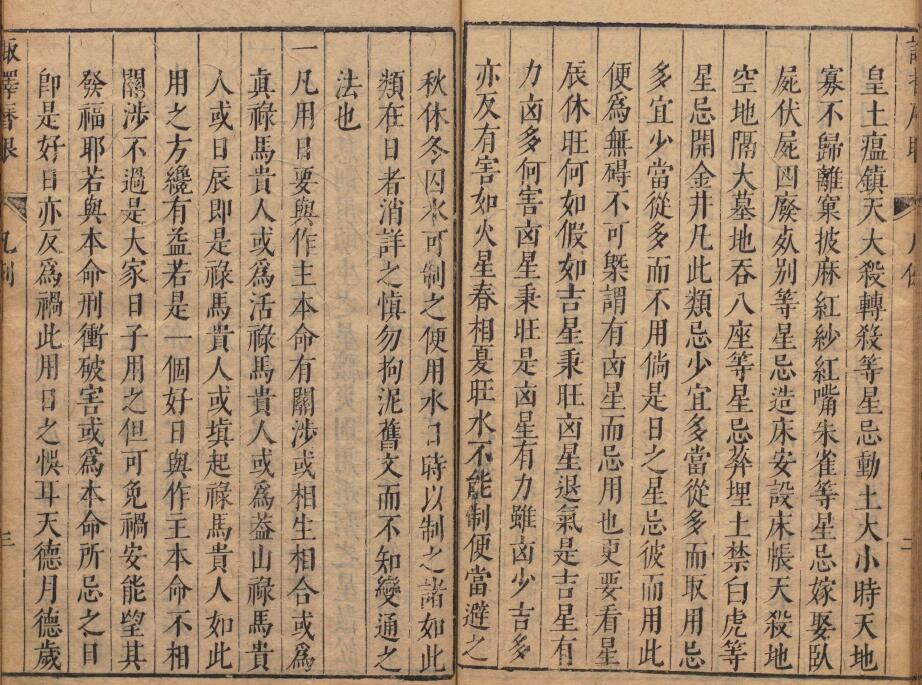 皇土瘟鎮天大殺轉殺等星忌動土大小時天地
寡不歸離窠披麻紅紗紅嘴朱雀等星忌嫁娶臥
屍伏屍四廢㚎别等星忌造床安設床帳天殺地
空地隔大墓地吞八座等星忌葬埋土禁白虎等
星忌開金井凡此類忌少宜多當從多而取用忌
多宜少當從多而不用倘是日之星忌彼而用此
便為無碍不可槩謂有凶星而忌用也更要看星
辰休旺何如假如吉星秉旺凶星退氣是吉星有
力凶多何害凶星秉旺是凶星有力雖凶少吉多
亦反有害如火星春相夏旺水不能制便當避之
秋休冬囚水可制之便用水日時以制之諸如此
類在日者消詳之慎勿拘泥舊文而不知變通之
法也
一凡用日要與作主本命有關涉或相生相合或為
眞祿馬貴人或為活祿馬貴人或為葢山祿馬貴
人或日辰即是祿馬貴人或塡起祿馬貴人如此
用之方纔有益若是一個好日與作主本命不相
關涉不過是大家日子用之但可免禍安能望其
發福耶若與本命刑衝破害或為本命所忌之日
卽是好日亦反為禍此用日之悞耳天德月德歲
凡例
三
二